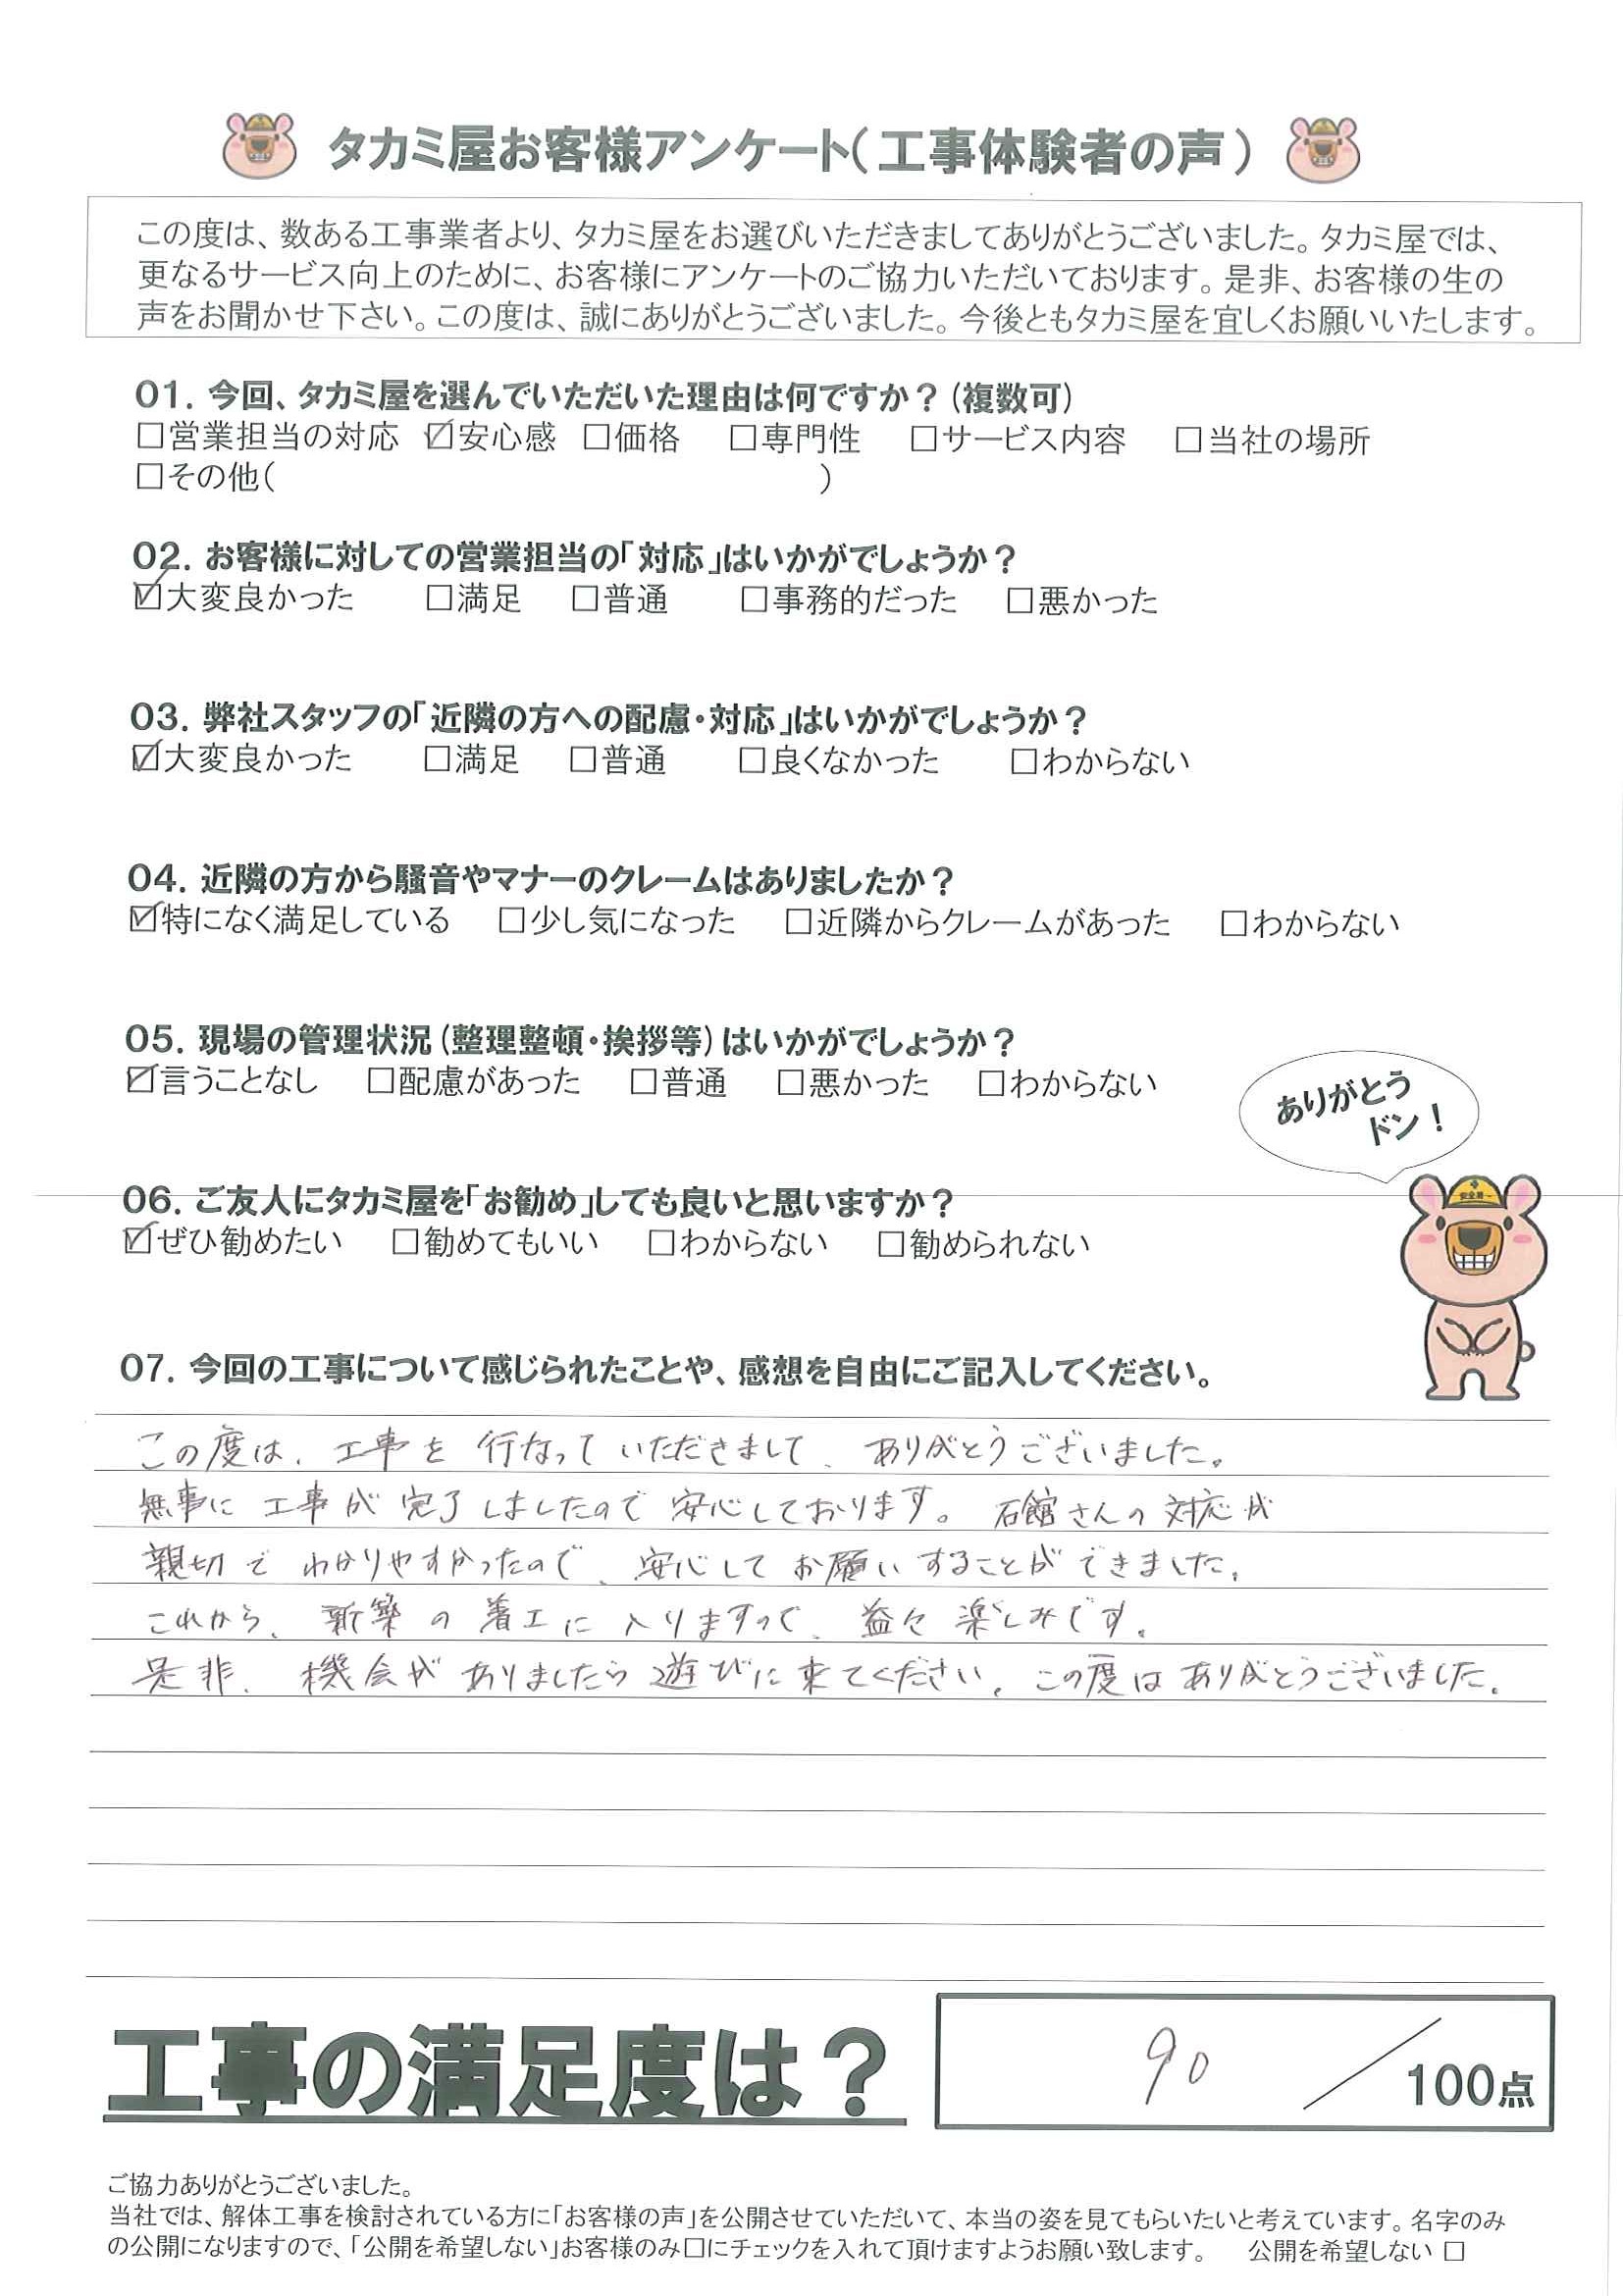 タカミ屋お客様アンケート(工事体験者の声)
この度は、数ある工事業者より、タカミ屋をお選びいただきましてありがとうございました。タカミ屋では、
更なるサービス向上のために、お客様にアンケートのご協力いただいております。是非、お客様の生の
声をお聞かせ下さい。この度は、誠にありがとうございました。今後ともタカミ屋を宜しくお願いいたします。
01. 今回、タカミ屋を選んでいただいた理由は何ですか?(複数可)
□営業担当の対応 ☑安心感 □価格 □専門性 □サービス内容 □当社の場所
□その他( )
02. お客様に対しての営業担当の「対応」はいかがでしょうか?
☑大変良かった □満足 □普通 □事務的だった □悪かった
03. 弊社スタッフの「近隣の方への配慮・対応」はいかがでしょうか?
☑大変良かった □満足 □普通 □良くなかった □わからない
04. 近隣の方から騒音やマナーのクレームはありましたか?
☑特になく満足している □少し気になった □近隣からクレームがあった □わからない
05. 現場の管理状況(整理整頓・挨拶等)はいかがでしょうか?
☑言うことなし □配慮があった □普通 □悪かった □わからない
ありがとう
ドン!
06. ご友人にタカミ屋を「お勧め」しても良いと思いますか?
☑ぜひ勧めたい □勧めてもいい □わからない □勧められない
安全第一
07. 今回の工事について感じられたことや、感想を自由にご記入してください。
この度は、工事を行なっていただきまして、ありがとうございました。
無事に工事が完了しましたので安心しております。石館さんの対応が
親切でわかりやすかったので、安心してお願いすることができました。
これから、新築の着工に入りますので、益々楽しみです。
是非、機会がありましたら遊びに来てください。この度はありがとうございました。
工事の満足度は? 90/100点
ご協力ありがとうございました。
当社では、解体工事を検討されている方に「お客様の声」を公開させていただいて、本当の姿を見てもらいたいと考えています。名字のみ
の公開になりますので、「公開を希望しない」お客様のみ□にチェックを入れて頂けますようお願い致します。 公開を希望しない □